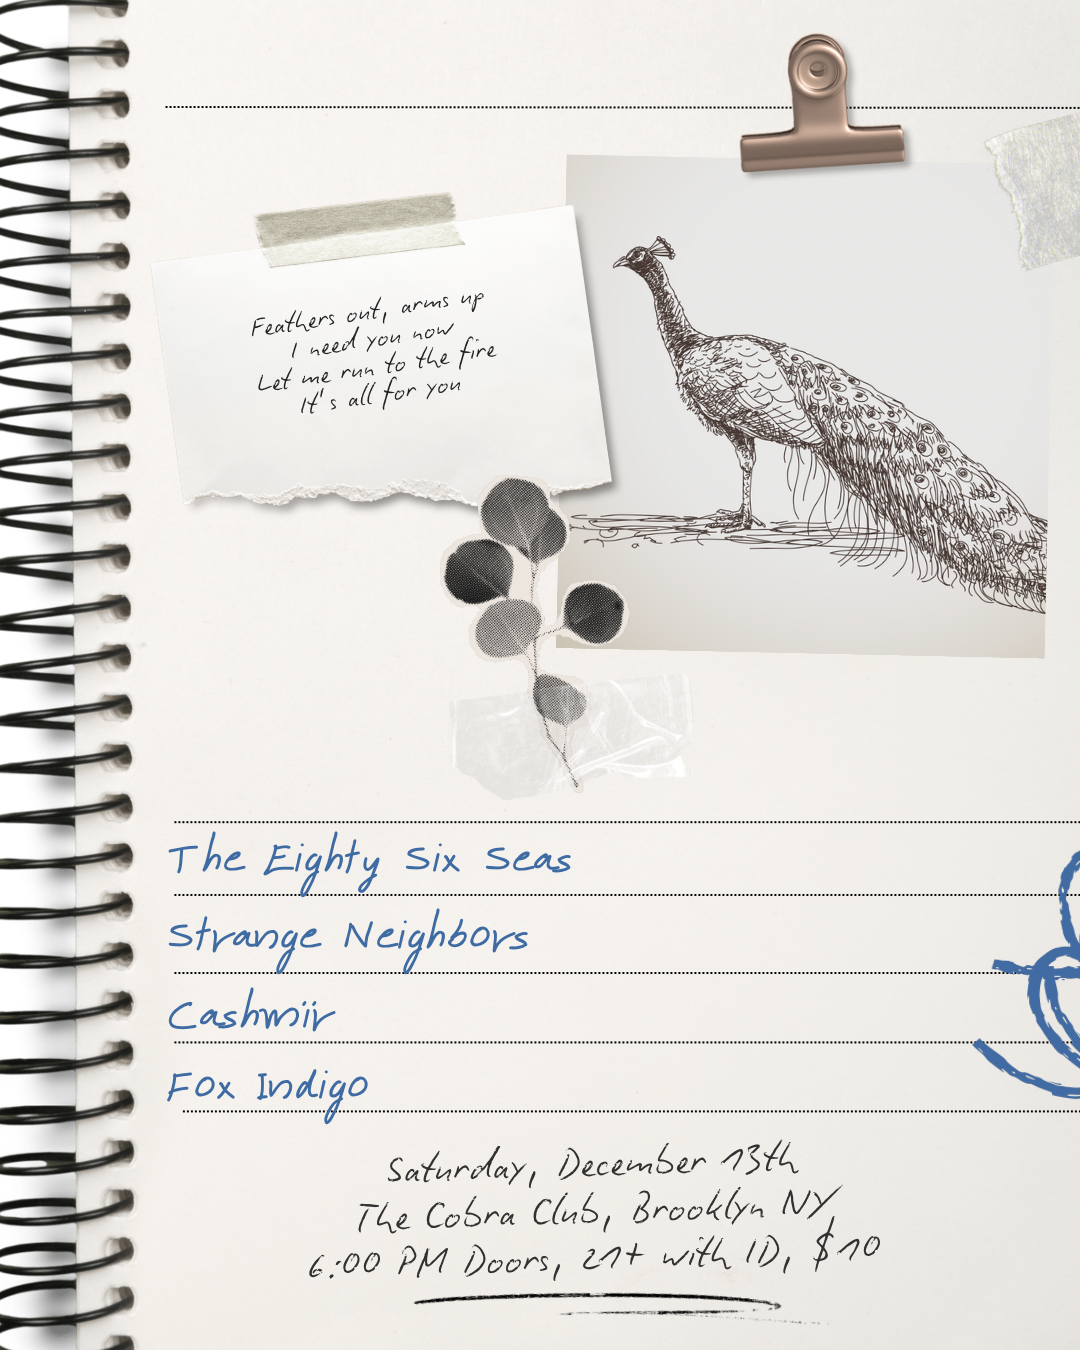 Feathers out, arms up
I need you now
Let me run to the fire
It's all for you
The Eighty Six Seas
Strange Neighbors
Cashmiir
Fox Indigo
Saturday, December 13th
The Cobra Club, Brooklyn NY
6:00 PM Doors, 21+ with ID, $10